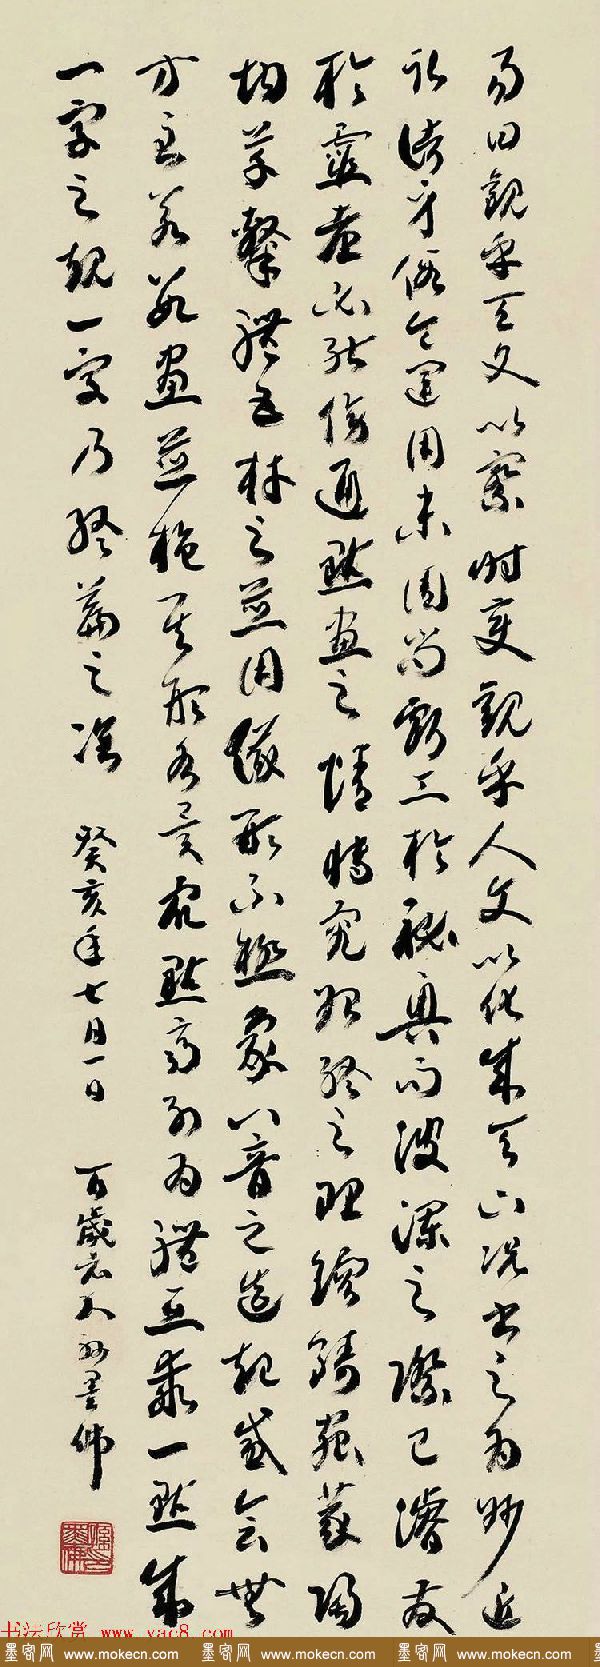 易曰觀乎天文以察時變觀乎人文以化成天下況書之為妙近
取諸身假令運用未周尚虧工於秘奧而波瀾之際已濬發
於靈臺必能傍通點畫之情博究始終之理鎔鑄蟲篆陶
均草隸體五材之並用儀形不極象八音之迭起感會無
方至若數畫並施其形各異眾點齊列為體互乖一點成
一字之規一字乃終篇之准
癸亥年七月一日
百歲老人孫墨佛
孫墨佛
书法欣赏 www.yac8.com
墨客网 www.mokecn.com 墨客网 www.mokecn.com 墨客网 www.mokecn.com